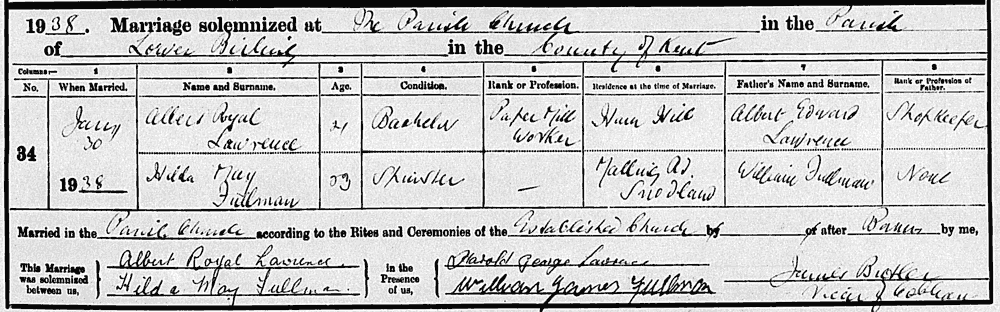 1938. Marriage solemnized at The Parish Church in the Parish
of Lower Birling in the County of Kent
Columns:— 1 2 3 4 5 6 7 8
No. When Married. Name and Surname. Age. Condition. Rank or Profession. Residence at the time of Marriage. Father's Name and Surname. Rank or Profession of Father.
34 Jany 30 1938
Albert Royal Lawrence 21 Bachelor Paper Mill Worker Ham Hill Albert Edward Lawrence Shopkeeper
Hilda May Fullman 23 Spinster — Malling Rd. Snodland William Fullman None
Married in the Parish Church according to the Rites and Ceremonies of the Established Church by or after Banns by me,
This Marriage was solemnized between us, Albert Royal Lawrence in the Presence of us, Harold George Lawrence James Butler
Hilda May Fullman. William James Fullman Vicar of